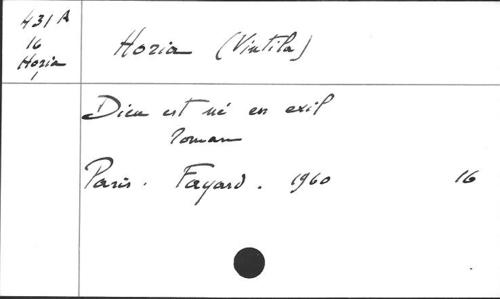 431 A
16
Horia
1
Horia (Vintila)
Dieu est né en exil
roman
Paris. Fayard. 1960 16